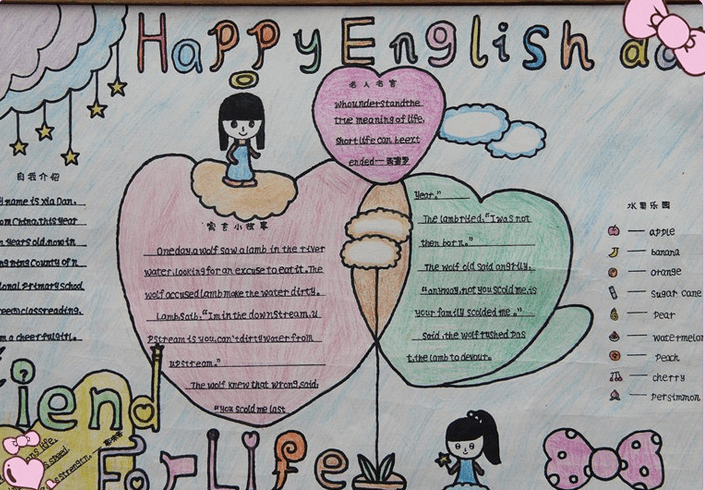 Happy English
名人名言
whounderstandthe
true meaning of life,
Short life can beext
ended—
自我介绍
y name is Xia Dan.
om China.this year
n years old.now in
ional primary school
m a cheerfulgirl.
寓言小故事
Oneday,a wolf saw a lamb in the river
water.looking for an excuse to eat it. The
wolf accused lamb make the water dirty.
Lamb saib."Im in the downstream.u
Pstream is you.can'tdirtywater from
upstream."
The wolf knew that wrong,said:
"you scold me last
year."
The lambtried."I was not
then born."
The wolf old said angrily.
"anyway.not you scold me,is
your family scolded me."
Said.the wolf rushed pas
t.the lamb to devour.
水果乐园
— apple
— banana
— orange
— Sugar cane
— pear
— watermelon
— peach
— cherry
— persimmon
iend
For Life